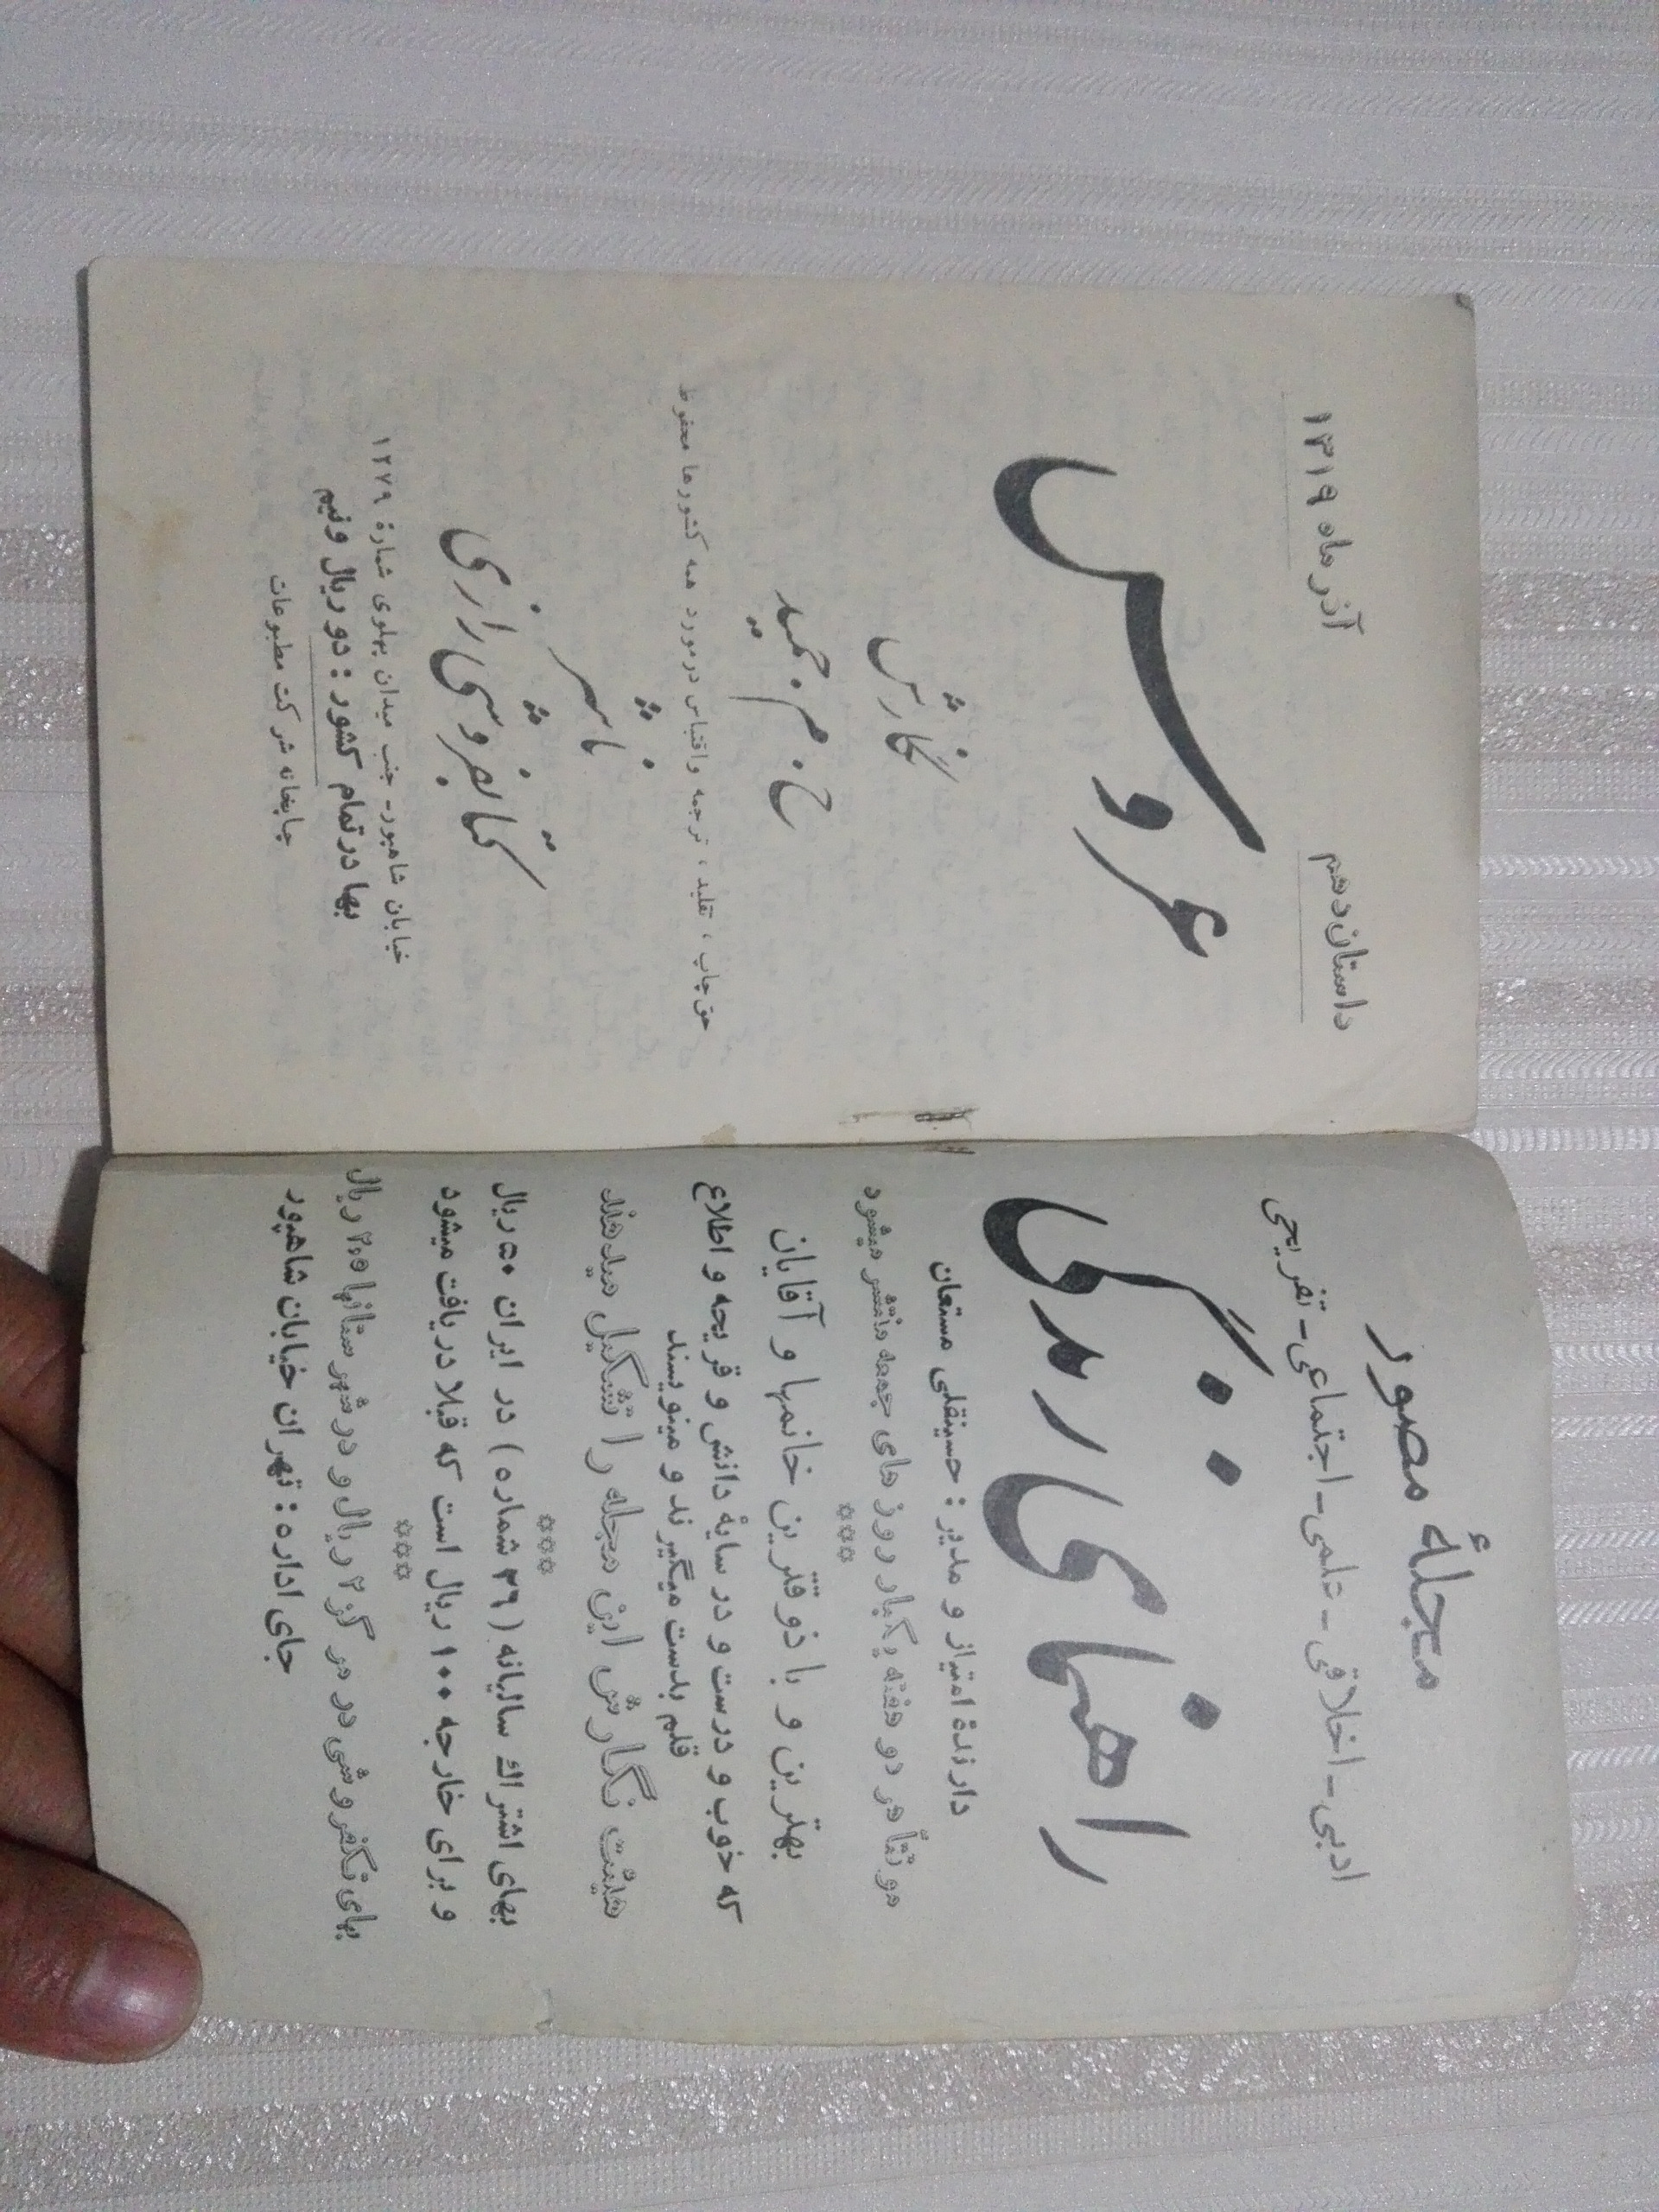 مجلهٔ مصور
ادبی - اخلاقی - علمی - اجتماعی - تفریحی
راهنمای زندگی
دارندهٔ امتیاز و مدیر : حسینقلی مستعان
موقتاً هر دو هفته یکبار روز های جمعه منتشر میشود
***
بهترین و با ذوقترین خانمها و آقایان
که خوب و درست و در سایهٔ دانش و قریحه و اطلاع
قلم بدست میگیرند و مینویسند
هیئت نگارش این مجله را تشکیل میدهند
***
بهای اشتراك سالیانه (۳۶ شماره) در ایران ۵۰ ریال
و برای خارجه ۱۰۰ ریال است که قبلا دریافت میشود
***
بهای تکفروشی در مرکز ۲ ریال و در شهرستانها ۲،۵ ریال
جای اداره : تهران خیابان شاهپور
داستان دهم آذر ماه ۱۳۱۹
عروس
نگارش
ح . م . حمید
حق چاپ ، تقلید ، ترجمه و اقتباس در مورد همه کشورها محفوظ
ناشر
کتابفروشی رازی
خیابان شاهپور - جنب میدان پهلوی شمارهٔ ۱۲۷۹
بها در تمام کشور : دو ریال و نیم
چاپخانه شرکت مطبوعات